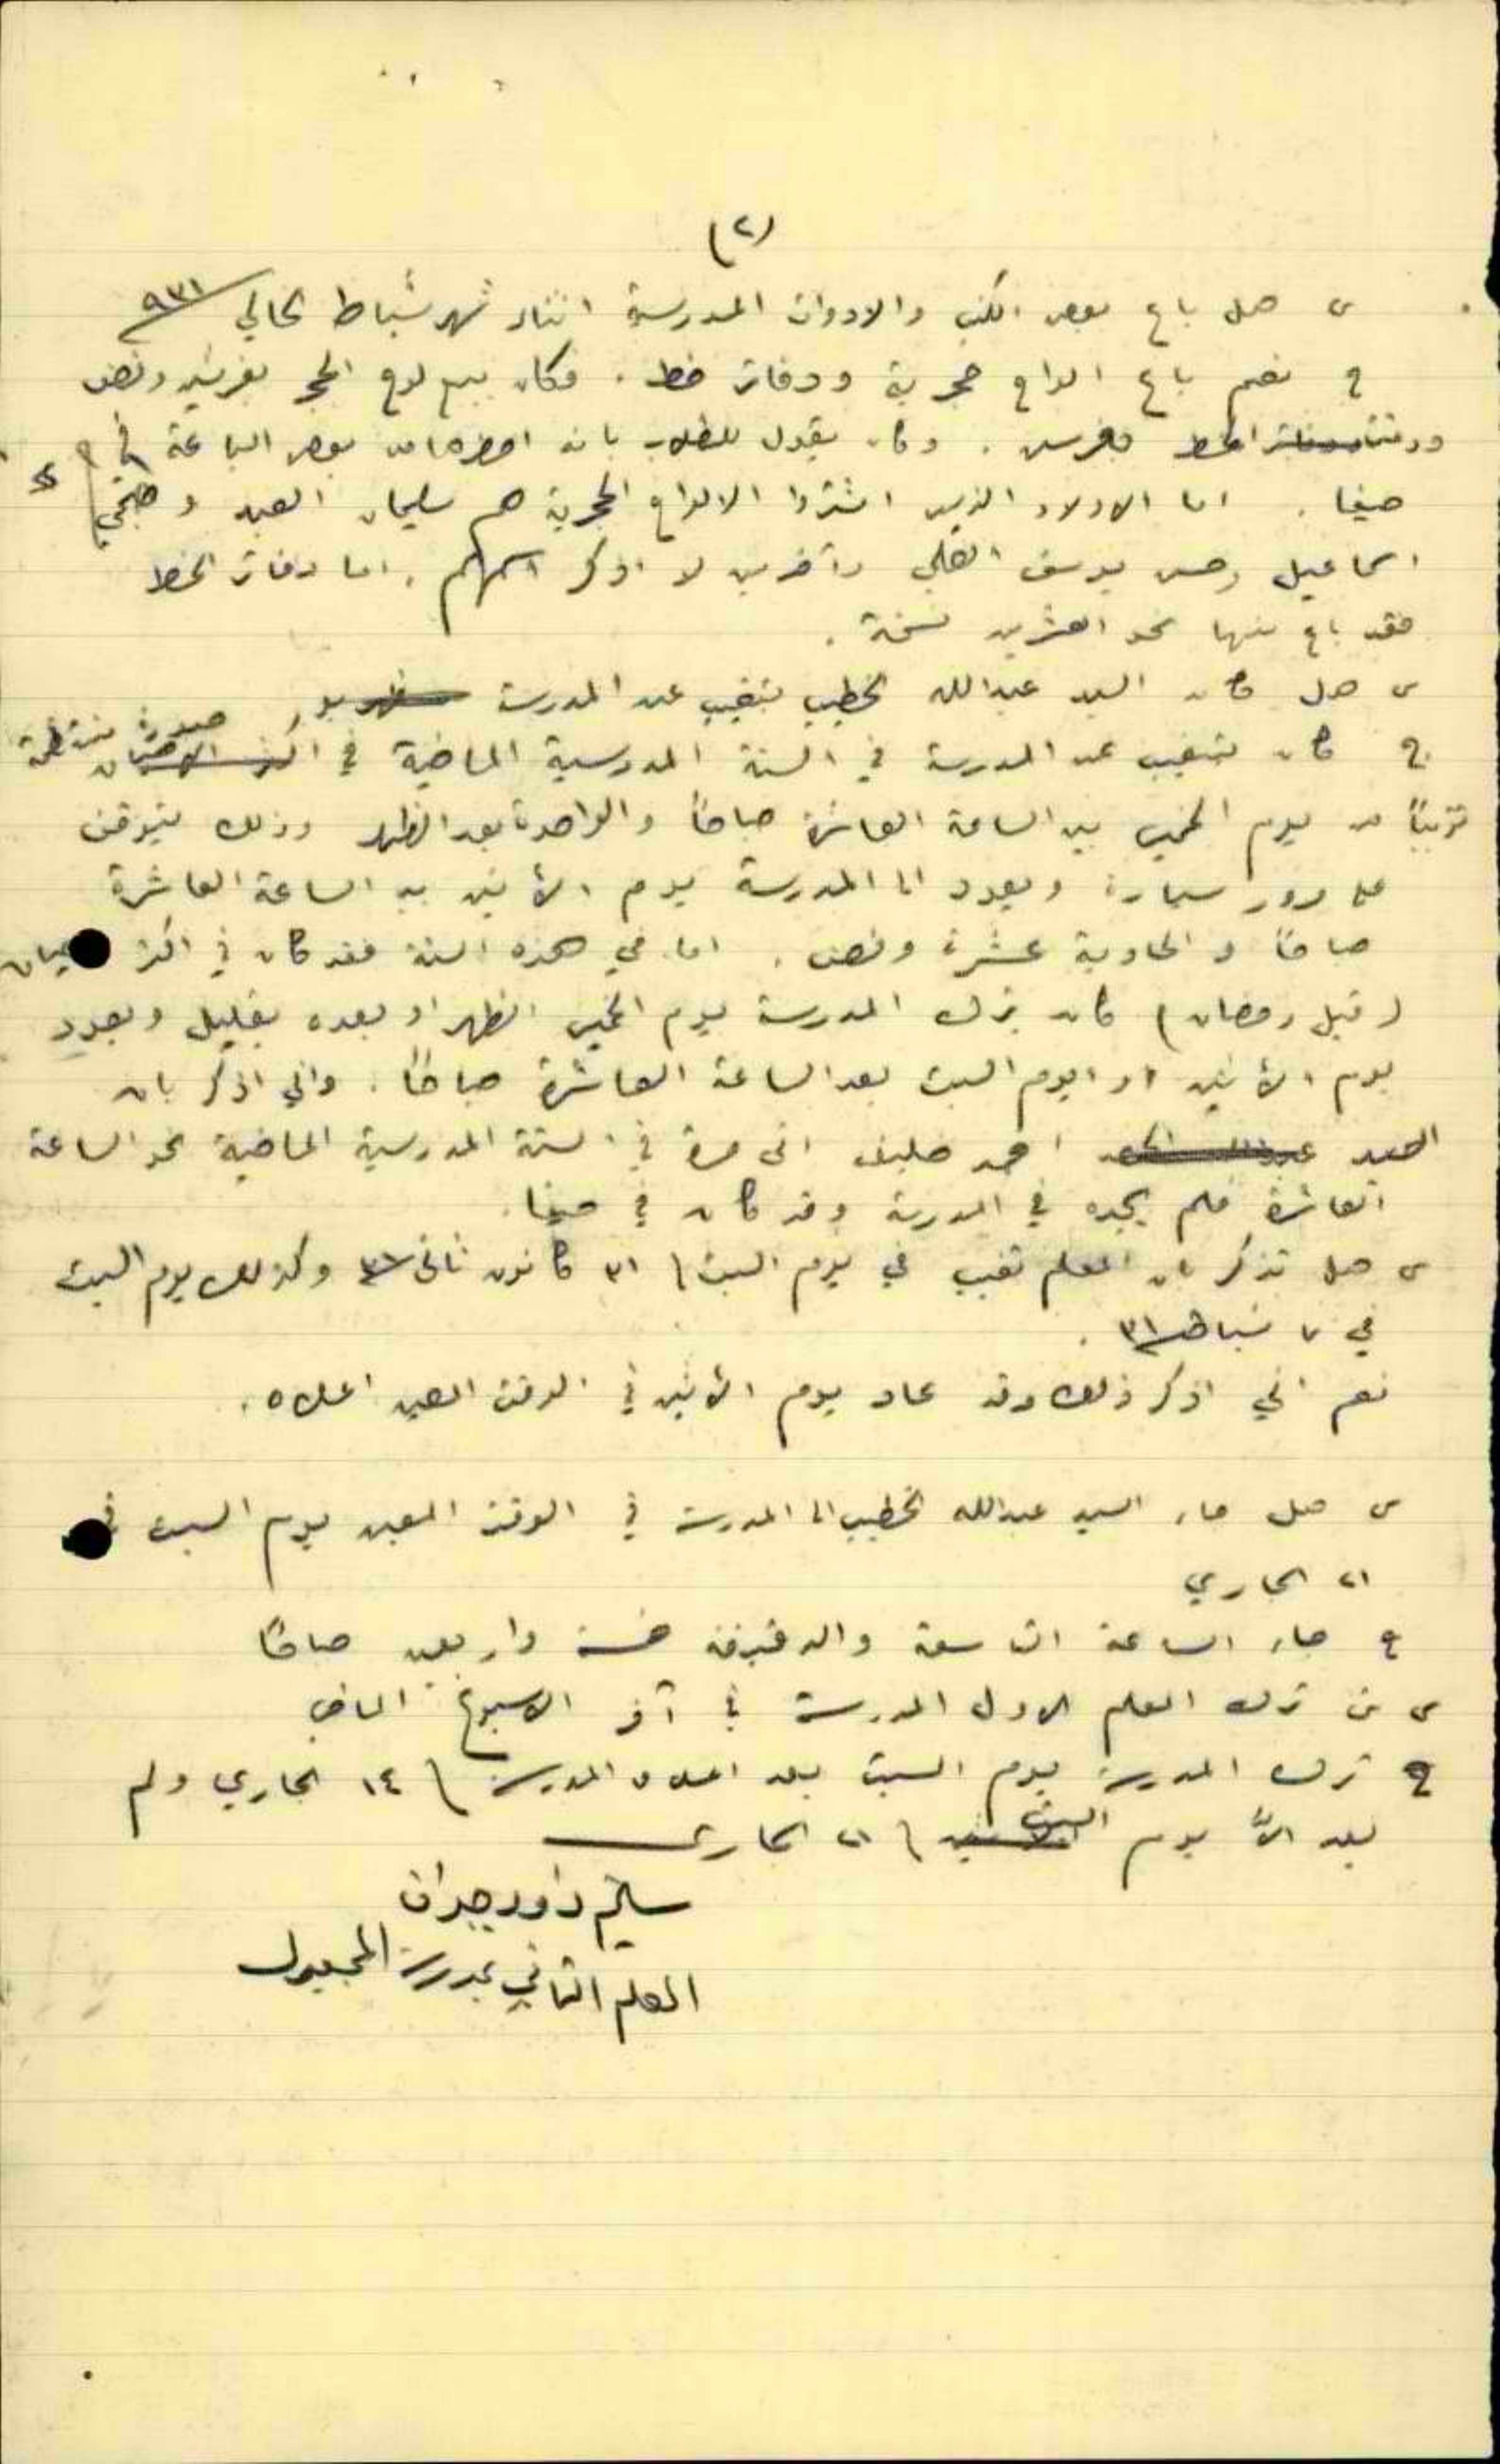 (٢)
س هل باع بعض الكتب والادوات المدرسية اثناء شهر شباط الحالي ٩٣١
ج نعم باع الواح حجرية ودفاتر خط . فكان يبيع لوح الحجر بقرشين ونصف
ودفتر الخط بقرشين . وكان يقول للطلاب بانه احضرها من بعض الباعة في
حيفا . اما الاولاد الذين اشتروا الالواح الحجرية هم سليمان العبد و
اسماعيل وحسن يوسف العلي وآخرين لا اذكر اسمهم . اما دفاتر الخط
فقد باع منها نحو العشرين نسخة .
س هل كان السيد عبدالله الخطيب يتغيب عن المدرسة
ج كان يتغيب عن المدرسة في السنة المدرسية الماضية في صورة منتظمة
تقريباً من يوم الخميس بين الساعة العاشرة صباحاً والواحدة بعد الظهر وذلك يتوقف
على مرور سيارة ويعود الى المدرسة يوم الاثنين بين الساعة العاشرة
صباحاً والحادية عشرة ونصف . اما في هذه السنة فقد كان في اكثر
(قبل رمضان) كان يترك المدرسة يوم الخميس الظهر او بعده بقليل ويعود
يوم الاثنين او يوم السبت بعد الساعة العاشرة صباحاً . واني اذكر بان
السيد احمد خليف اتى مرة في السنة المدرسية الماضية نحو الساعة
العاشرة فلم يجده في المدرسة وقد كان في حيفا .
س هل تذكر بان المعلم تغيب في يوم السبت ٣١ كانون ثاني ٣١ وكذلك يوم السبت
في ٧ شباط ٣١ .
نعم اني اذكر ذلك وقد عاد يوم الاثنين في الوقت المعين اعلاه .
س هل جاء السيد عبدالله الخطيب الى المدرسة في الوقت المعين يوم السبت في
٢١ الجاري
ج جاء الساعة التاسعة والدقيقة خمسة واربعين صباحاً
س متى ترك المعلم الاول المدرسة في آخر الاسبوع الماضي
ج ترك المدرسة يوم السبت بعد المدرسة ١٤ الجاري ولم
يعد الاّ يوم السبت ٢١ الجاري
سليم داود جبران
المعلم الثاني بمدرسة